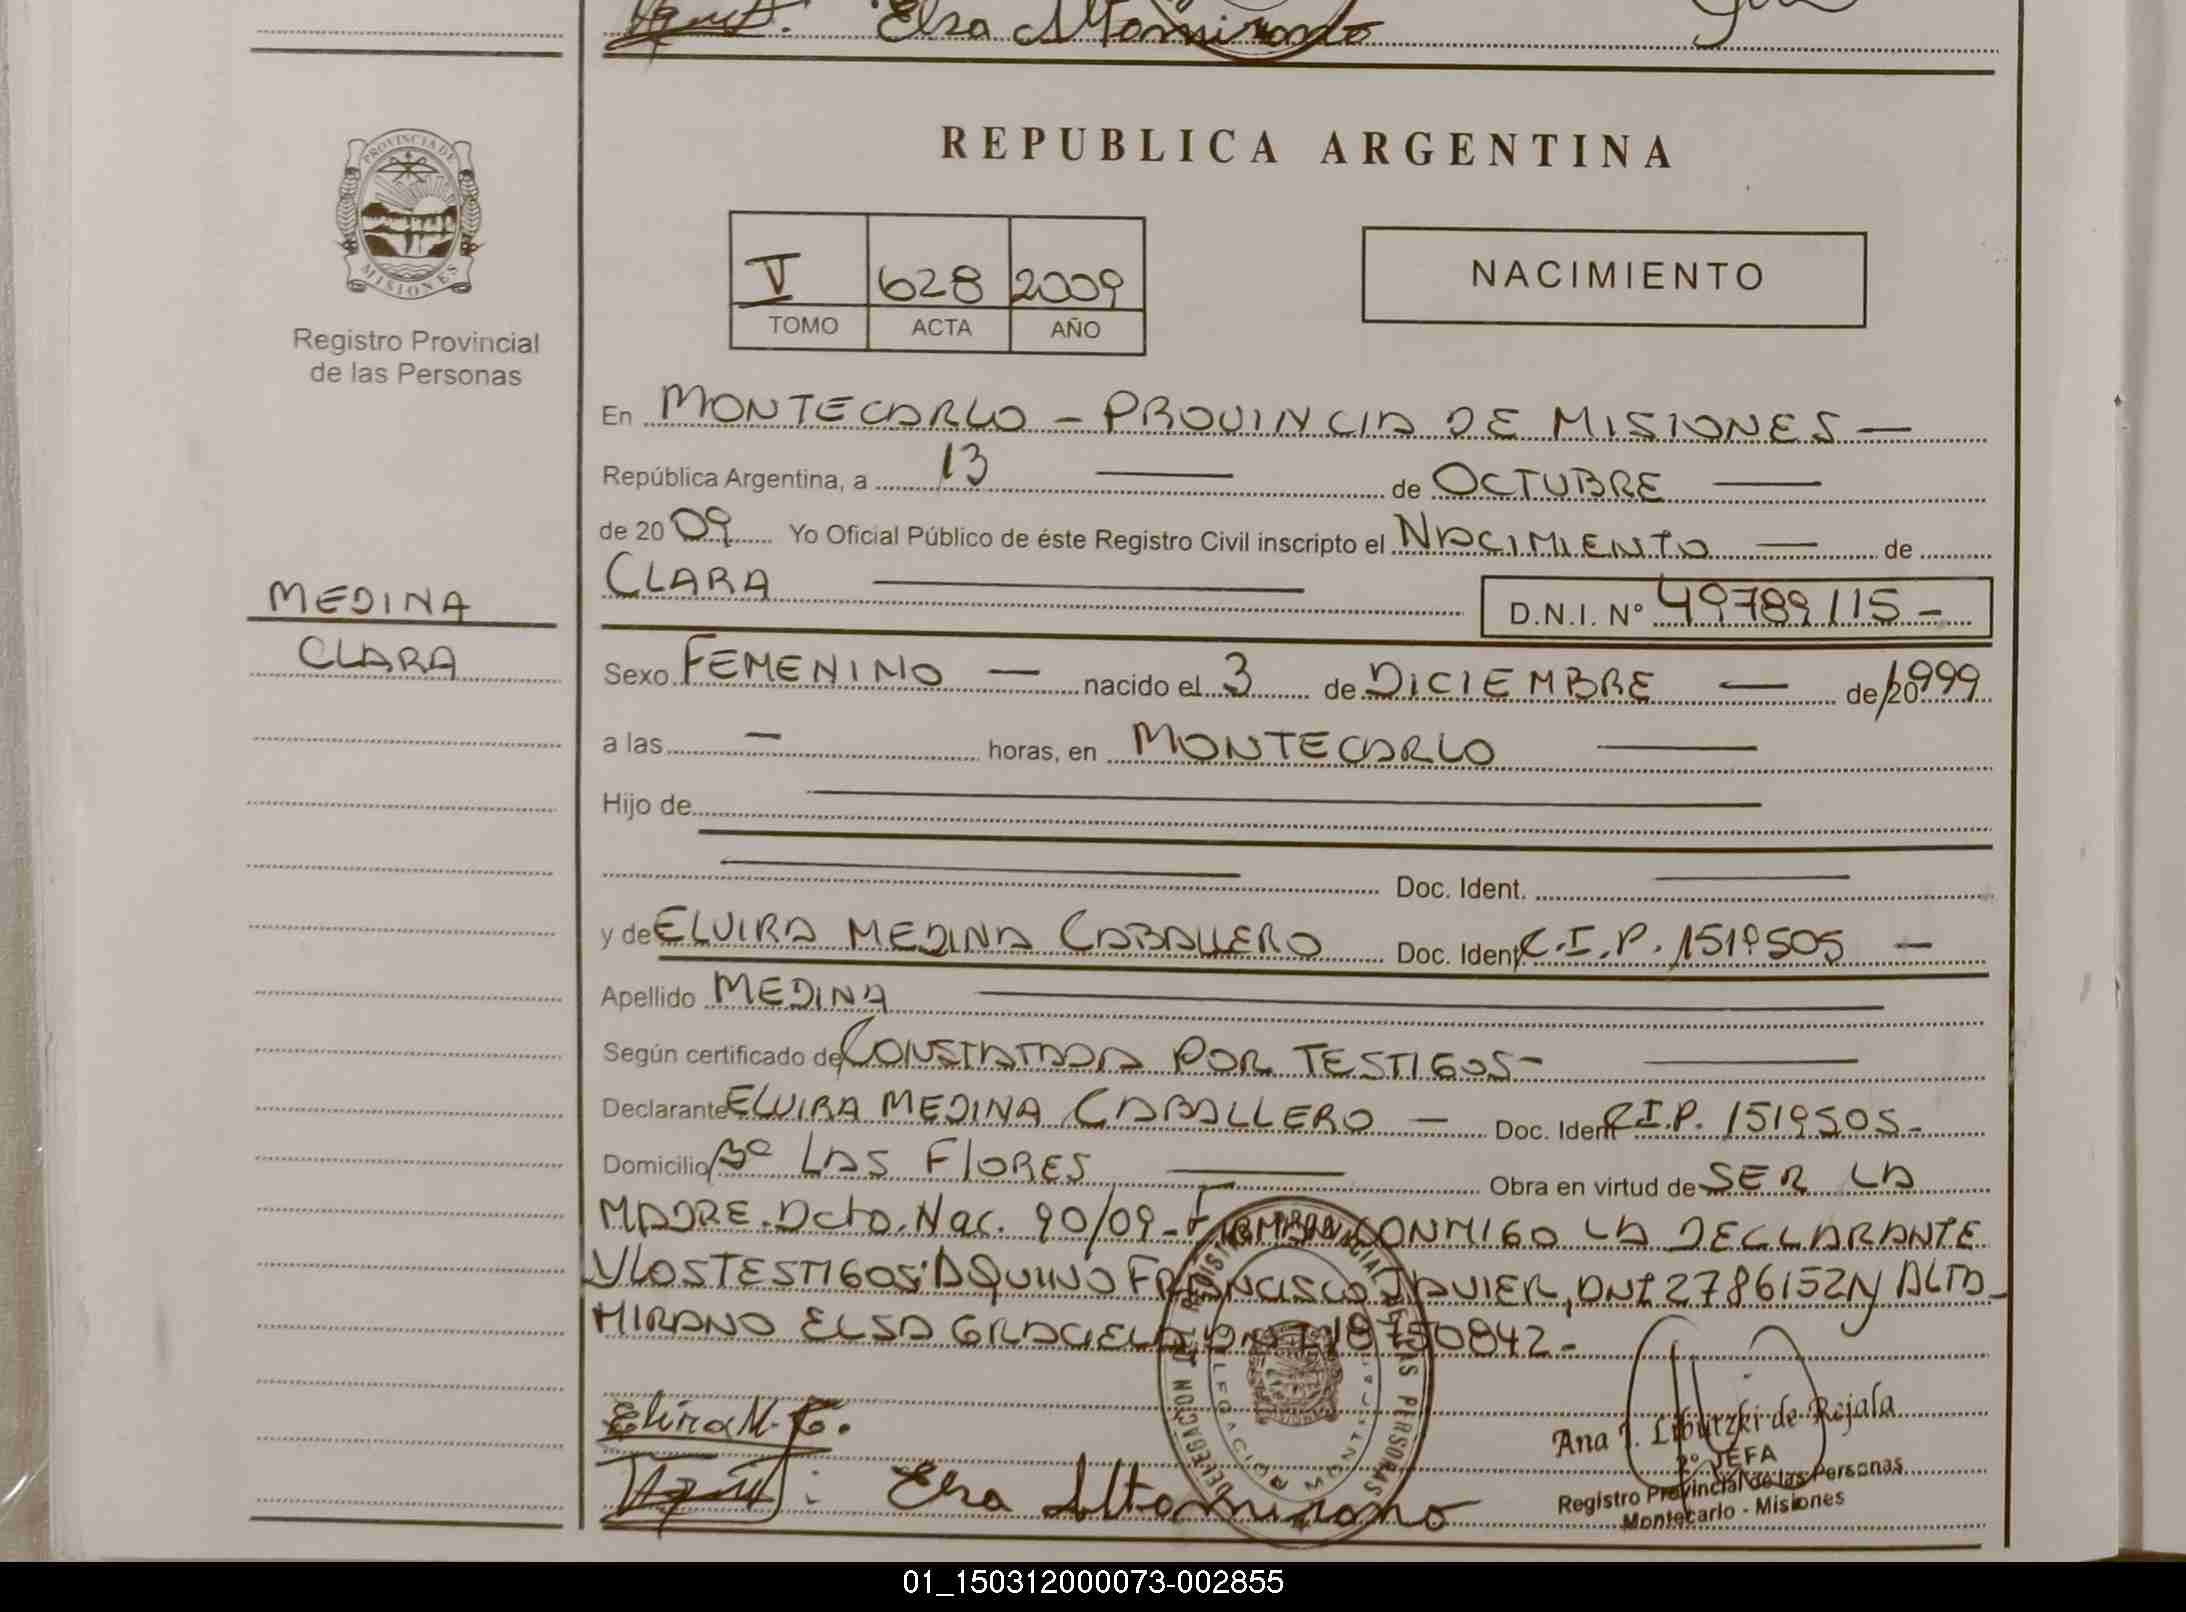 Elsa Altamirano
PROVINCIA DE
MISIONES
Registro Provincial
de las Personas
MEDINA
CLARA
REPUBLICA ARGENTINA
V 628 2009
TOMO ACTA AÑO
NACIMIENTO
En MONTECARLO - PROVINCIA DE MISIONES —
República Argentina, a 13 — de OCTUBRE —
de 20 09 Yo Oficial Público de éste Registro Civil inscripto el NACIMIENTO — de
CLARA — D.N.I. Nº 49789115-
Sexo FEMENINO — nacido el 3 de DICIEMBRE — de /20 1999
a las — horas, en MONTECARLO —
Hijo de —
— Doc. Ident. —
y de ELVIRA MEDINA CABALLERO Doc. Ident. C.I.P. 1519505 —
Apellido MEDINA —
Según certificado de CONSTATADA POR TESTIGOS- —
Declarante ELVIRA MEDINA CABALLERO — Doc. Ident. C.I.P. 1519505-
Domicilio Bº LAS FLORES — Obra en virtud de SER LA
MADRE. Dcto. Nac. 90/09 - FIRMAN CONMIGO LA DECLARANTE
Y LOS TESTIGOS: AQUINO FRANCISCO JAVIER, DNI 27861521 y ALTA-
MIRANO ELSA GRACIELA, DNI 18750842-
Elvira M. C.
Elsa Altamirano
REGISTRO PROVINCIAL DE LAS PERSONAS
Ana I. Liburzki de Rojala
2º JEFA
Registro Provincial de las Personas
Montecarlo - Misiones
01_150312000073-002855